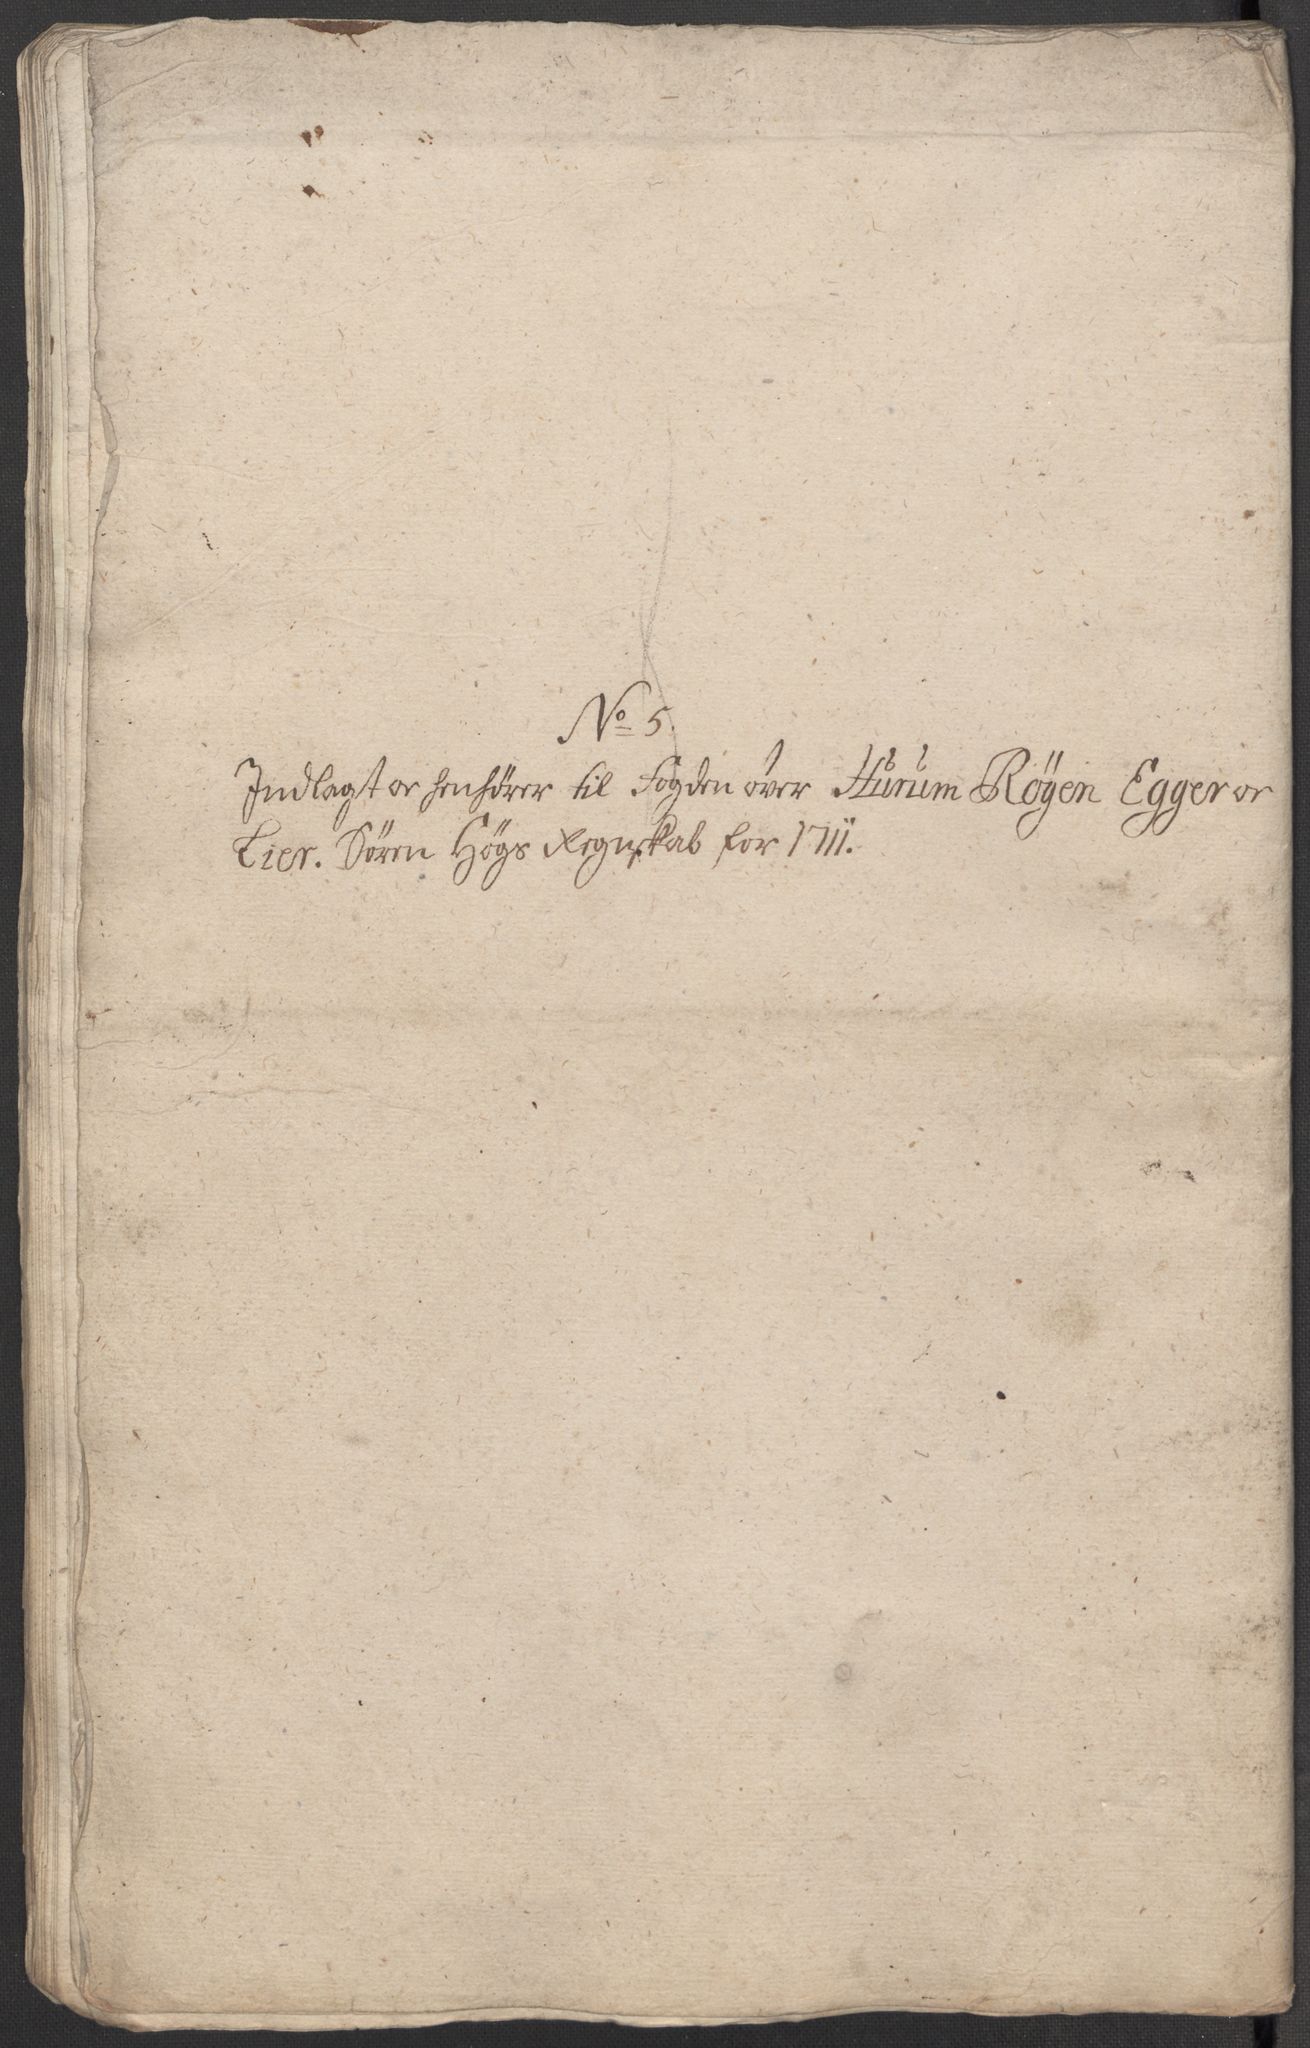 No 5.
Indlagt oc henhörer til Fogden över Hurum Röyen Egger oc
Lier. Sören Högs Regnskab for 1711.